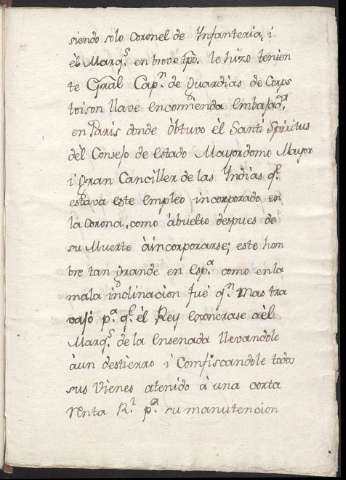 siendo solo Coronel de Ynfanteria, i
el Marq.^s en brove tpo. le hizo tenien
te Gral Cap.^n de Guardias de Corps
toison llave encomienda embajad.^a
en Paris donde óbtuvo él Santi Spiritus
del Consejo de Estado Mayordomo Mayor
i Gran Canciller de las Yndias q.^e
estava este empleo incorporado en
la Corona, como ábuelto despues de
su Muerte áincorporarse; este hom
bre tan grande en Esp.^a como enla
mala inclinacion fué q.^n mas tra
vajó p.^a q.^e él Rey éxonerase áél
Marq.^s de la Ensenada llevandole
áun destierro i Confiscandole todos
sus Vienes atenido á una corta
renta R.^l p.^a su manutencion